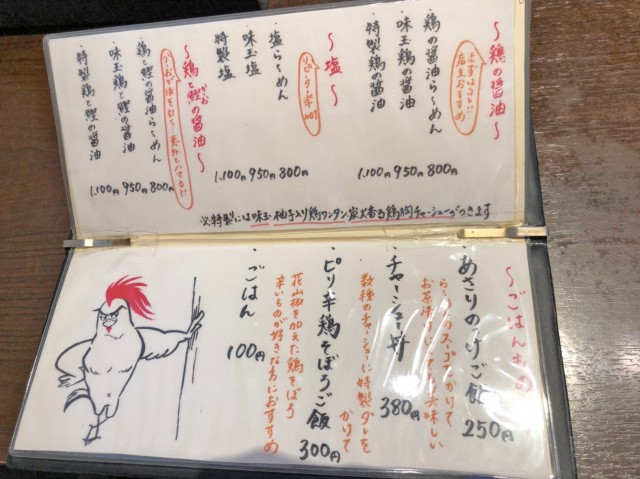 〜鶏の醤油〜
まずはコレ!!
店主おすすめ
・鶏の醤油らーめん 800円
・味玉鶏の醤油 950円
・特製鶏の醤油 1.100円
〜塩〜
リピーター率No1
・塩らーめん 800円
・味玉塩 950円
・特製塩 1.100円
〜鶏と鰹の醤油〜
かつお
・鶏と鰹の醤油らーめん 800円
・味玉鶏と鰹の醤油 950円
・特製鶏と鰹の醤油 1.100円
※特製には味玉・柚子入り鶏ワンタン・炭火香る鶏胸チャーシューがつきます
〜ごはんもの〜
・あさりのっけご飯 250円
らーめんのスープをかけて
お茶漬けにしても美味しい
・チャーシュー丼 380円
数種のチャーシューに特製ダレを
かけて
・ピリ辛鶏そぼろご飯 300円
花山椒を加えた鶏そぼろ
辛いものが好きな方におすすめ
・ごはん 100円